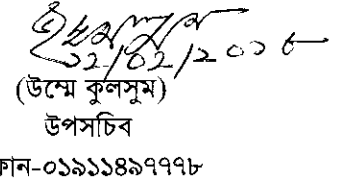 ২২/০২/২০১৮
(উম্মে কুলসুম)
উপসচিব
কান-০১৯১১৪৯৭৭৭৮